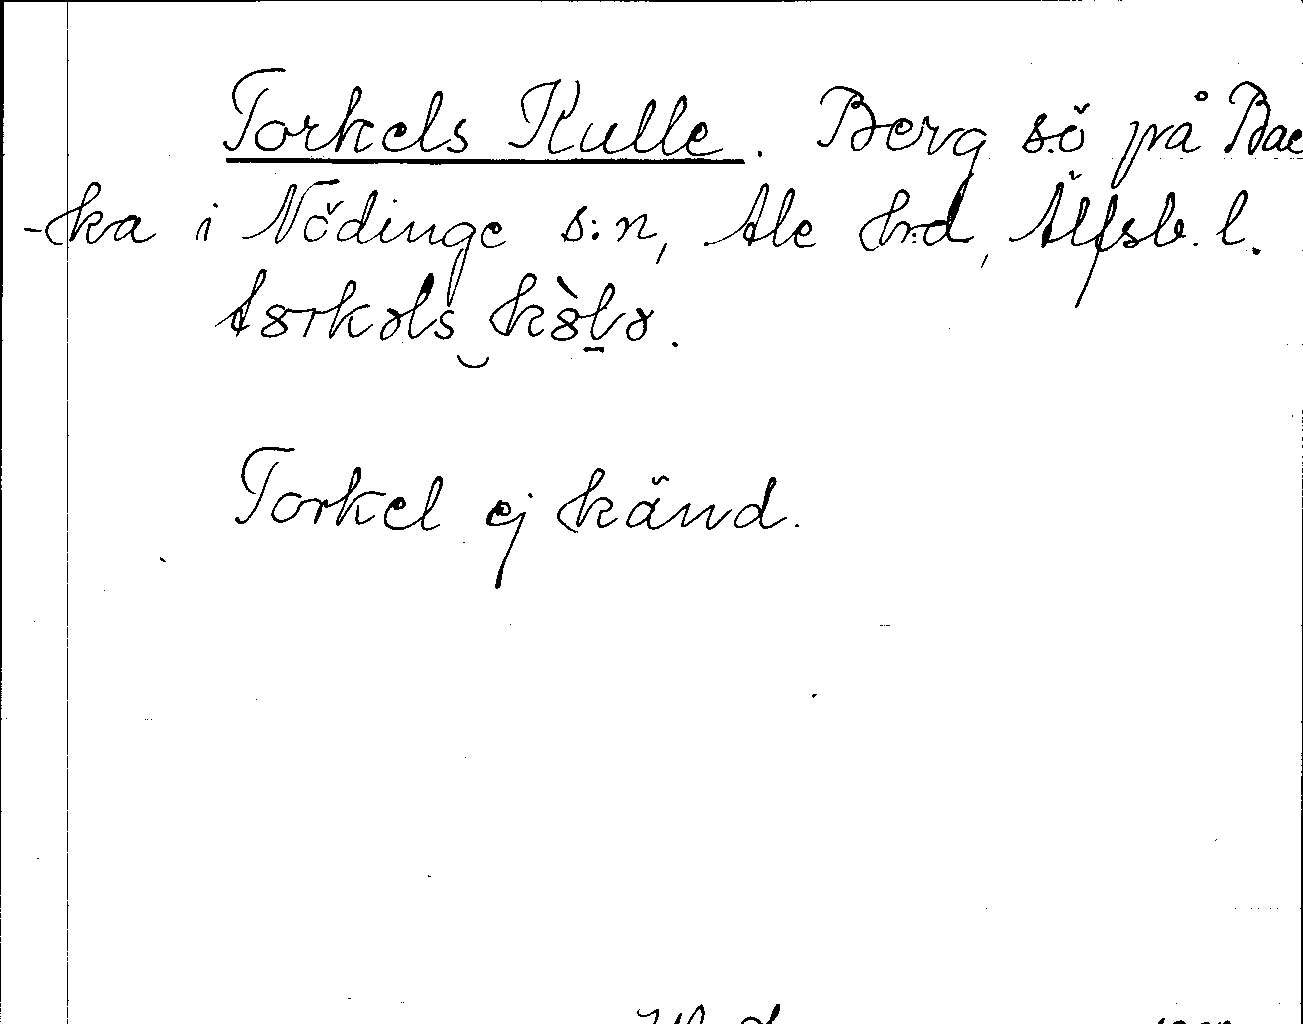 Torkels Kulle. Berg sö på Bac
-ka i Nödinge s:n, Ale h:d, Älfsb. l.
Torkel ej känd.